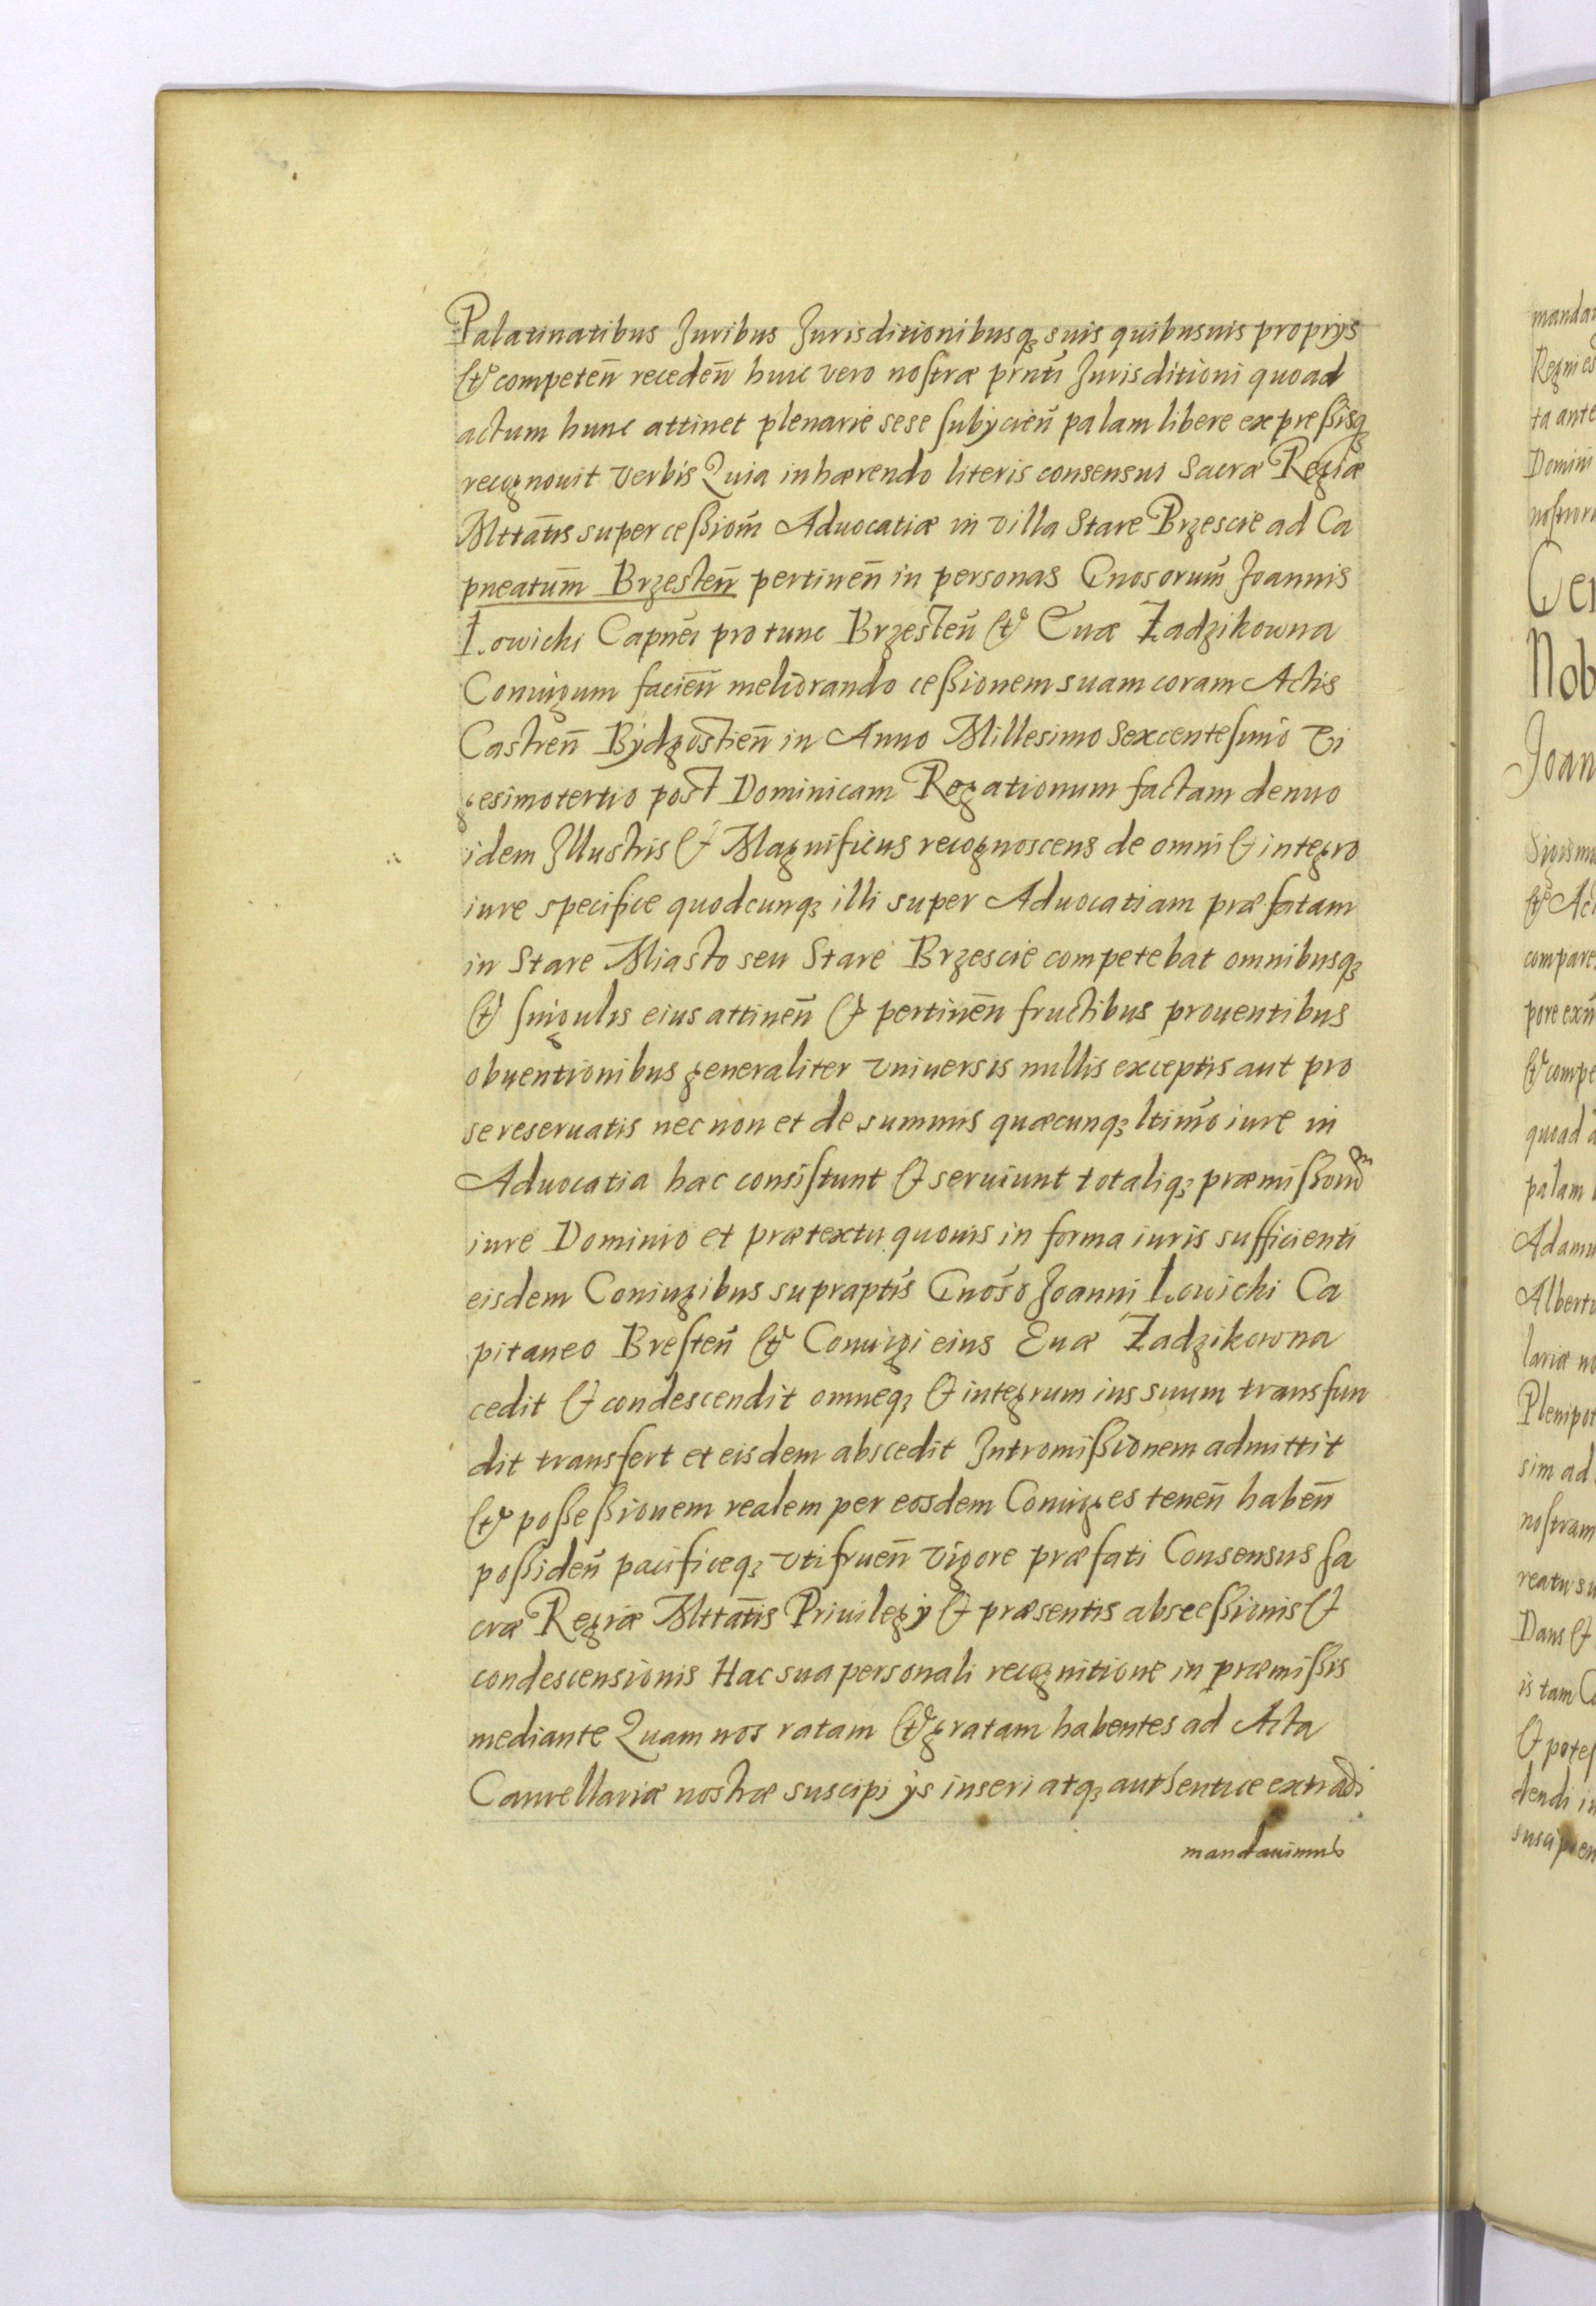 Palatinatibus Juribus Jurisditionibusq₃ suis quibusuis proprijs
& competeñ recedeñ huic vero nostræ prnti Jurisditioni quoad
actum hunc attinet plenarie sese subijcieñ palam libere expressisq₃
recognouit verbis Quia inhærendo literis consensus Sacræ Regiæ
Mttatis super cessiom̃ Aduocatiæ in villa Stare Brzescie ad Ca
pneatum̃ Brzesteñ pertineñ in personas Gnosorum̃ Joannis
Łowichi Capnei pro tunc Brzesteñ & Euæ Zadzikowna
Coniugum facieñ meliorando cessionem suam coram Actis
Castreñ Bydgostieñ in Anno Millesimo Sexcentesimo Vi
gesimotertio post Dominicam Rogationum factam denuo
idem Illustris & Magnificus recognoscens de omni & integro
iure specifice quodcunq₃ illi super Aduocatiam præfatam
in Stare Miasto seu Stare Brzescie competebat omnibusq₃
& singulis eius attineñ & pertineñ fructibus prouentibus
obuentionibus generaliter vniuersis nullis exceptis aut pro
se reseruatis nec non et de summis quæcunq₃ ltimo iure in
Aduocatia hac consistunt & seruiunt totaliq₃ præmissorum
iure Dominio et prætextu quouis in forma iuris sufficienti
eisdem Coniugibus supraptis Gnoso Joanni Łowichi Ca
pitaneo Bresteñ & Coniugi eius Euæ Zadzikowna
cedit & condescendit omneq₃ & integrum ius suum transfun
dit transfert et eisdem abscedit Intromissionem admittit
& possessionem realem per eosdem Coniuges teneñ habeñ
possideñ pacificeq₃ vtifrueñ vigore præfati Consensus Sa
cræ Regiæ Mttatis Priuilegij & præsentis abscessionis &
condescensionis Hac sua personali recognitione in præmissis
mediante Quam nos ratam & gratam habentes ad Acta
Cancellariæ nostræ suscipi ijs inseri atq₃ authentice extradi
mandauimus
mandau
ta ante
Domini
Cer
Nob
Joan
Sigismu
& Act
compare
pore
& compe
quoad
palam
Adamu
Albertu
lariæ no
Plenipot
sim ad
nostram
reatu su
Dans &
is tam Co
& potes
dendi in
suscipien